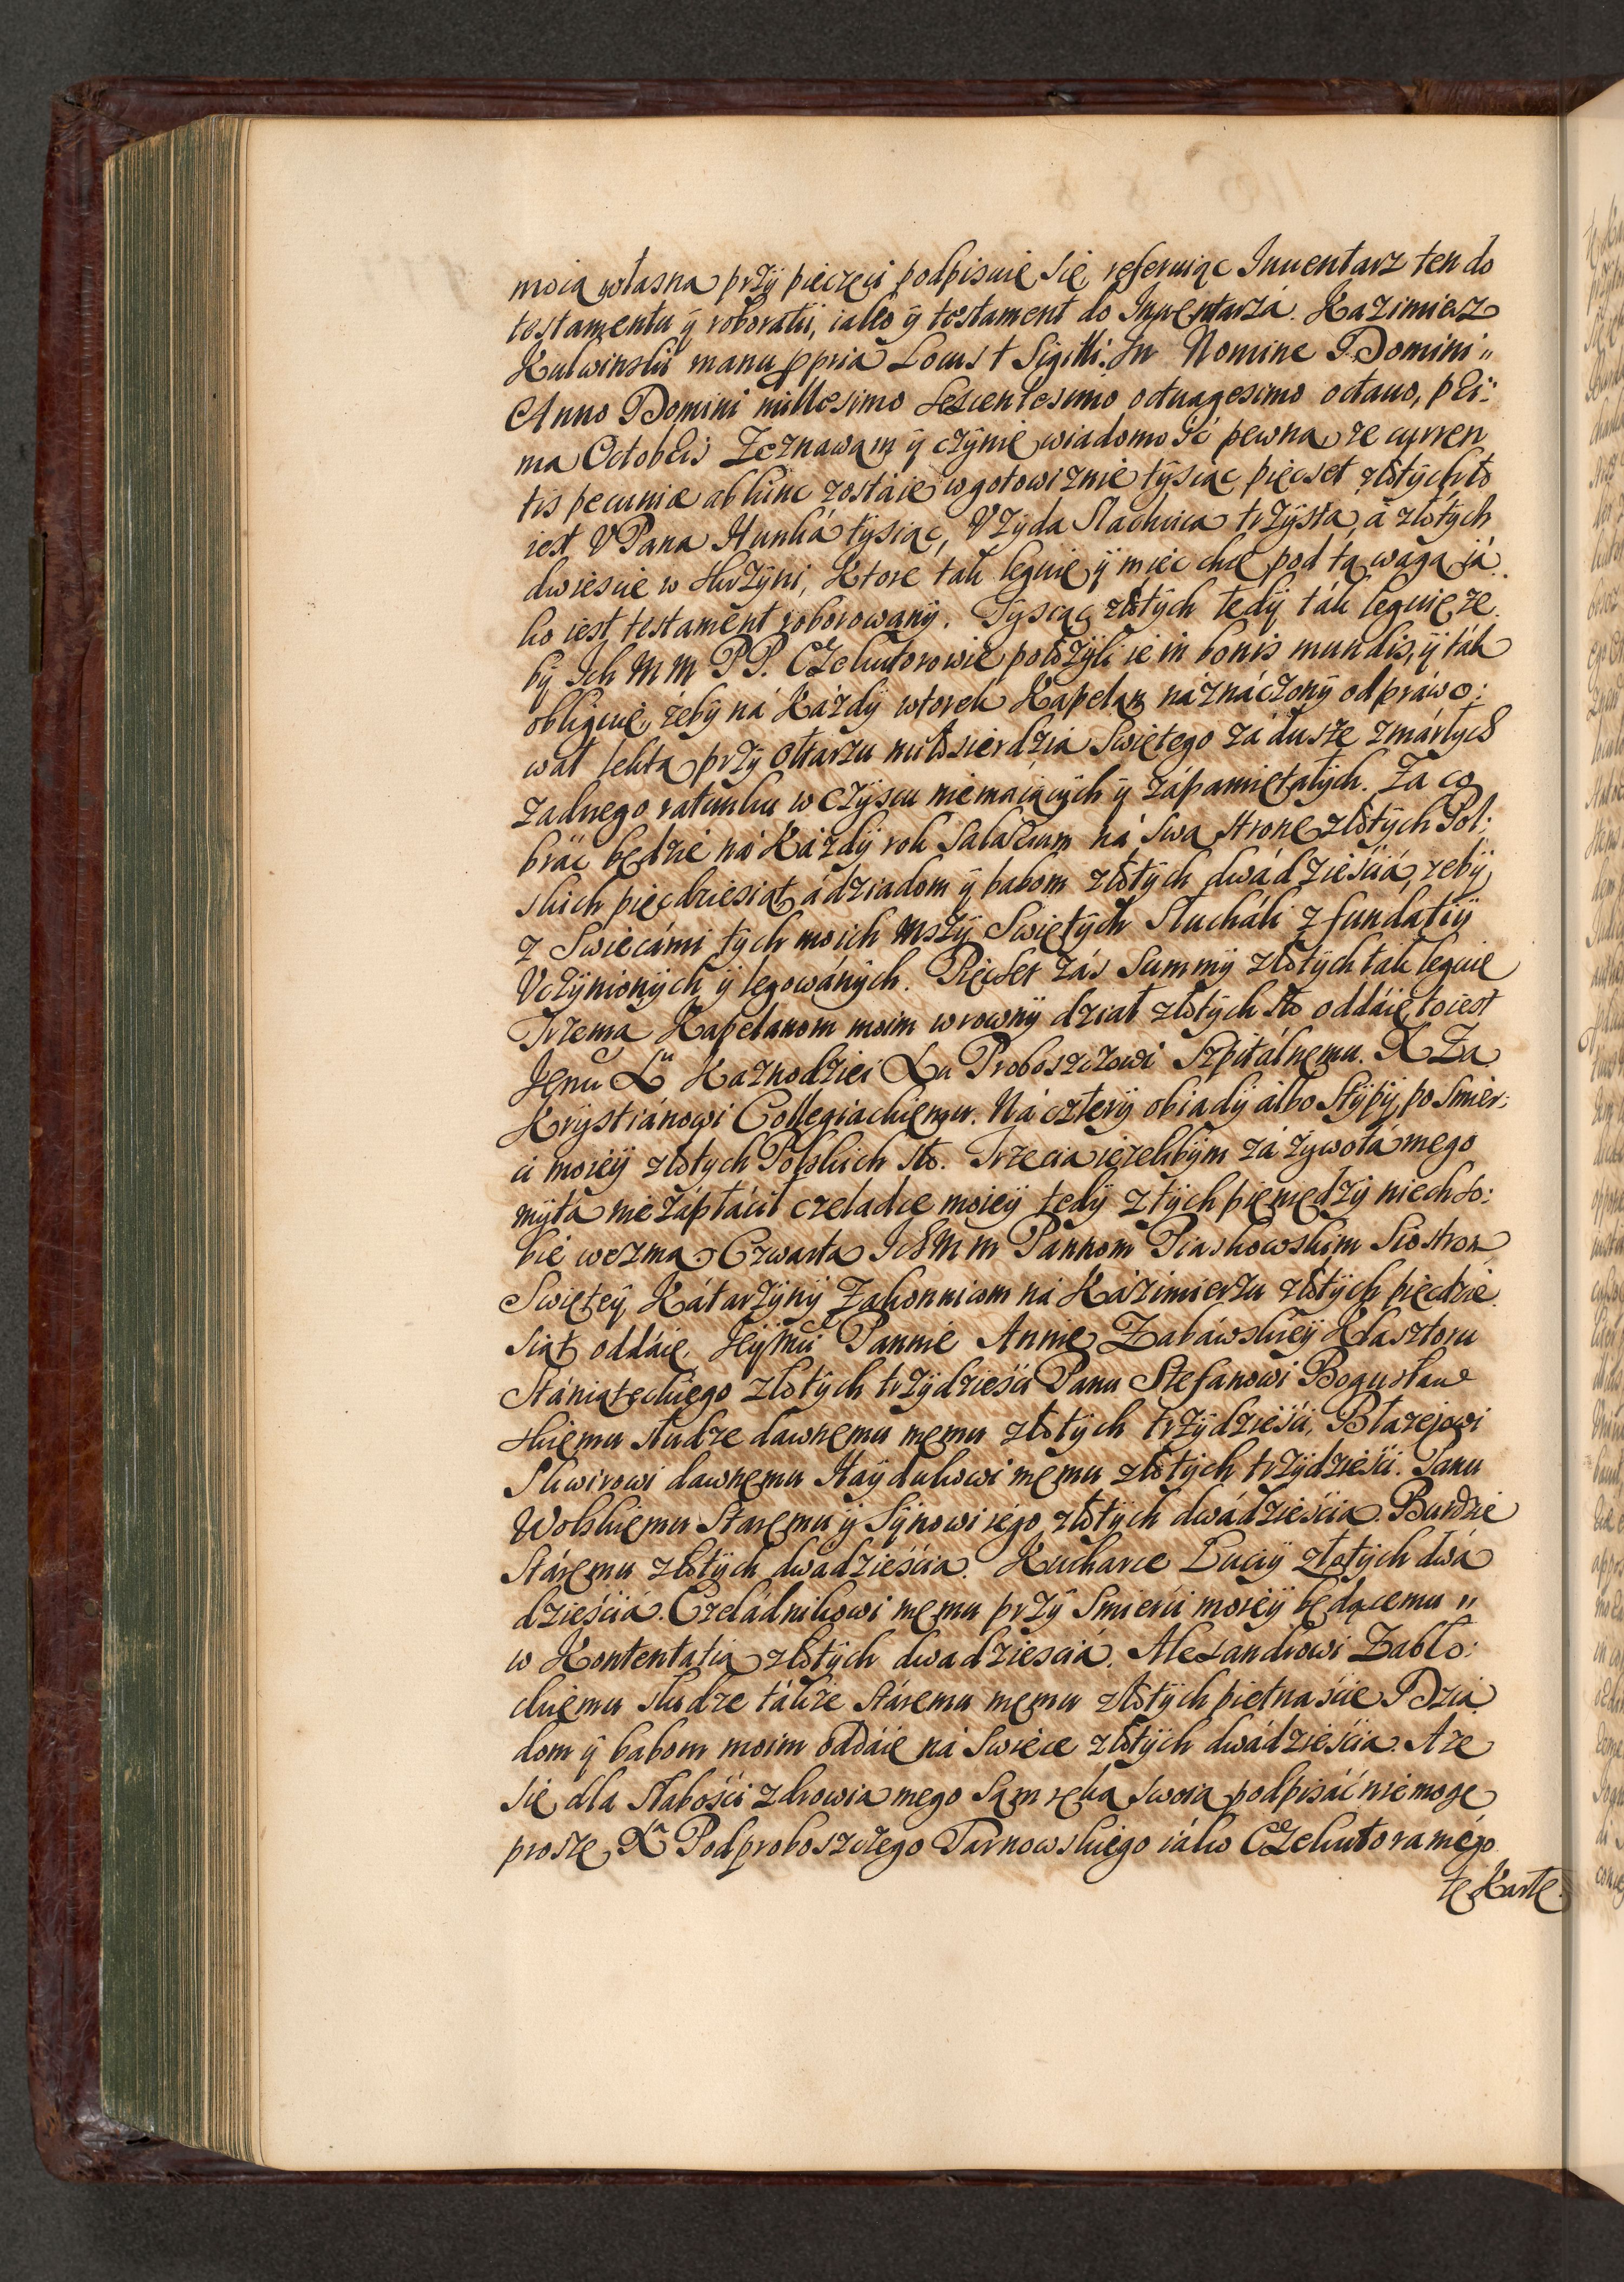 moią własną przÿ pieczęci podpisuię się, referuiąc Inuentarz ten do
testamentu ÿ roboratÿ, iako ÿ testament do Inwentarzá. Kazimierz
Kulwinski manu ppria Locus † Sigilli. In Nomine Domini„
Anno Domini millesimo sexcentesimo octuagesimo octauo, pri:
ma Octobris Zeznawam ÿ czÿnię wiadomość pewną, ze curren
tis pecuniæ ad hunc zostáie w gotowiznie tÿsiąc pięcset złotÿch to
iest V Pana Hunká tÿsiąc, V Zÿda Slachcica trzÿsta, á złotÿch
dwiescie w skrzÿni, Ktore tak leguię ÿ mieć chcę pod tą wagą já
ko iest testament roborowanÿ. Tÿsiąc złotÿch tedÿ ták leguię ze
bÿ Ich MM PP. Exekutorowie położÿli ie in bonis mundis, ÿ ták
obliguię, żebÿ ná Káżdÿ wtorek Kapelan náznáczonÿ odpráwo:
wał lektą przÿ Ołtarzu miłosierdzia Swiętego zá dusze zmárłÿch
żadnego ratunku w czÿscu niemaiącÿch ÿ zápamiętałÿch. Za co
bráć będzie ná Káżdÿ rok Salarium ná swą stronę złotÿch Pol:
skich pięcdziesiąt, á dziadom ÿ babom złotÿch dwádzieściá, żebÿ
z Swiecámi tÿch moich Mszÿ Swiętÿch słucháli z fundatiÿ
Vczÿnionÿch ÿ legowánÿch. Pięcset zás Summÿ złotÿch tak leguię
Trzema Kapelanom moim w rownÿ dział złotÿch sto oddáię, to iest
Jeṁu X Kaznodziei Xu Proboszczowi Szpitálnemu. X Za
Krÿstiánowi Collegiackiemu. Ná czterÿ obiadÿ álbo stÿpÿ po śmier:
ci moieÿ złotych Polskich sto. Trzecia ieżelibÿm zá żÿwotá mego
mÿta nie zápłácił czeladce moieÿ tedÿ z tÿch pieniędzÿ niech so:
bie wezmą. Czwarta Ich M m Pannom Piaskowskim Siostrom
Swięteÿ Kátarzÿnÿ Zakonnicom ná Káźimierzu złotÿch pięcdzie
siąt oddáię. Jeÿṁci Pannie Annie Zabáwskieÿ Klasztoru
Stániąteckiego złotÿch trzÿdzieści Panu Stefanowi Bogusław
skiemu słudze dawnemu memu złotÿch trzÿdzieści, Błażejowi
Skwirowi dawnemu Haÿdukowi memu złotÿch trzÿdzieści. Panu
Wolskiemu Staremu ÿ Sÿnowi iego złotÿch dwádzieścia. Burdzie
Stáremu złotÿch dwádzieścia. Kucharce Luciÿ złotÿch dwá
dzieściá. Czeládnikowi memu przÿ śmierci moieÿ będącemu „
w Kontentatią złotÿch dwadzieściá. Alexandrowi Zabło:
ckiemu słudze tákże Stáremu memu złotÿch piętnaście Dzia
dom ÿ babom moim oddáię ná Swiece złotÿch dwádzieścia. A ze
się dla słabości zdrowia mego sam ręką swoią podpisáć nie mogę
proszę X Podproboszczego Tarnowskiego iáko Exekutora mégo
tę Kartę.